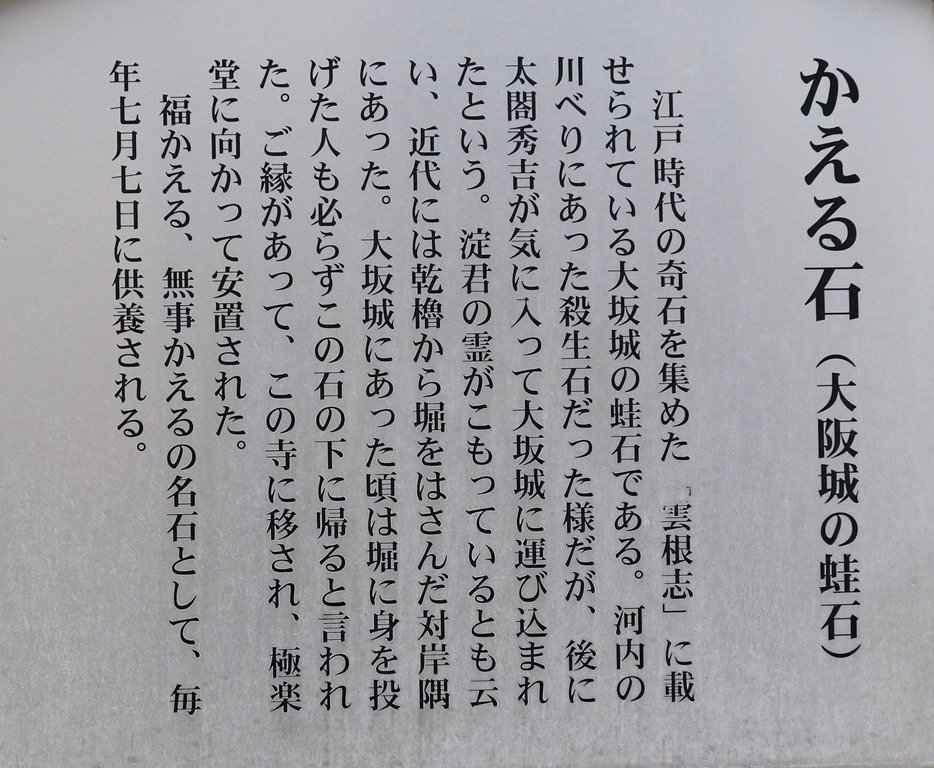 かえる石（大阪城の蛙石）
江戸時代の奇石を集めた「雲根志」に載
せられている大坂城の蛙石である。河内の
川べりにあった殺生石だった様だが、後に
太閤秀吉が気に入って大坂城に運び込まれ
たという。淀君の霊がこもっているとも云
い、近代には乾櫓から堀をはさんだ対岸隅
にあった。大坂城にあった頃は堀に身を投
げた人も必らずこの石の下に帰ると言われ
た。ご縁があって、この寺に移され、極楽
堂に向かって安置された。
福かえる、無事かえるの名石として、毎
年七月七日に供養される。